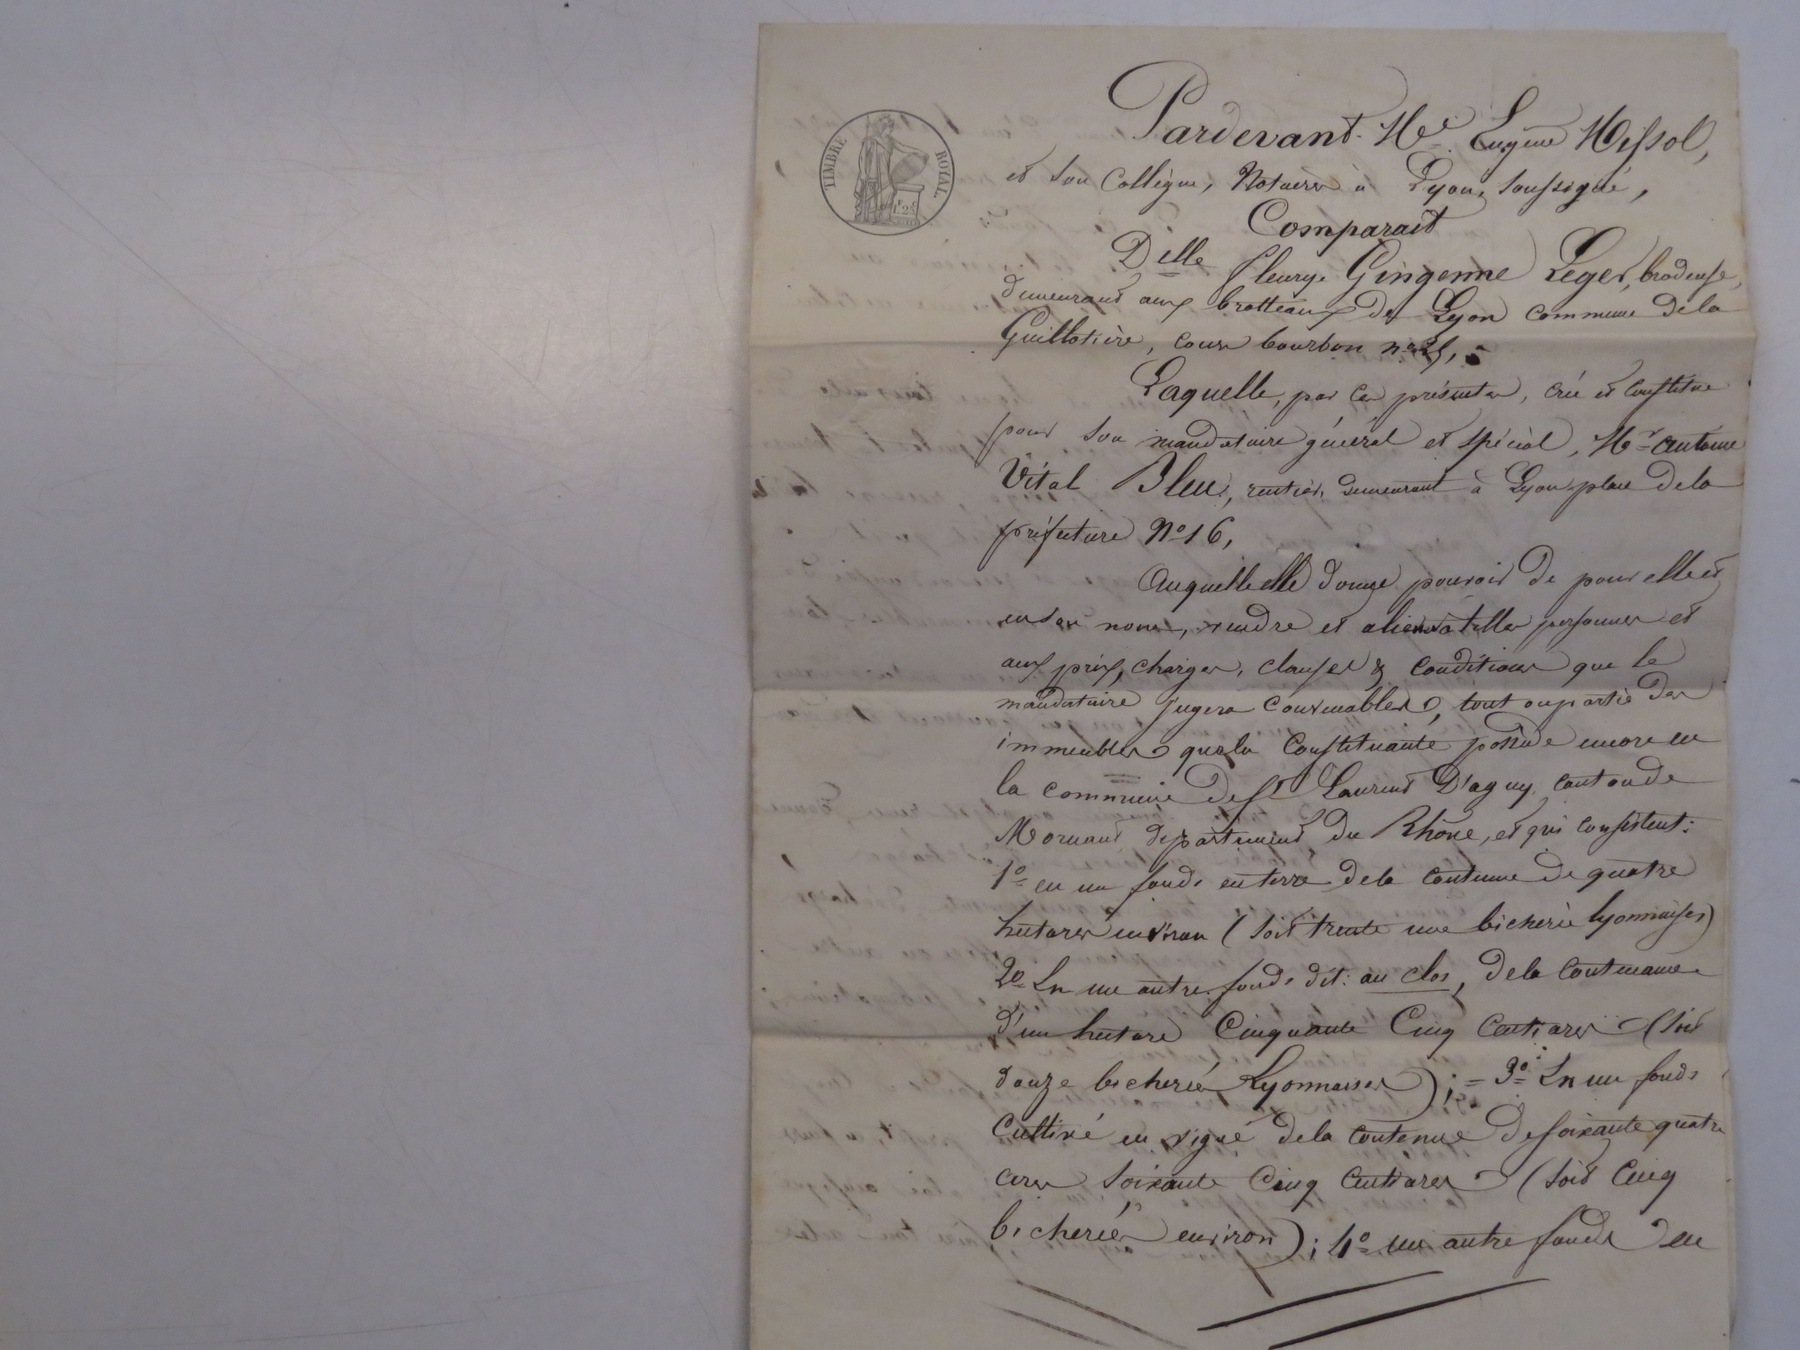 TIMBRE ROYAL
1F. 25
Pardevant Me Eugène Missol,
et son Collègue, Notaires à Lyon, soussignés,
Comparait
Delle fleurye Gingenne Leger, brodeuse,
demeurant aux brotteaux de Lyon commune de la
Guillotière, cours bourbon no
Laquelle, par ces présentes, crée et constitue
pour son mandataire général et spécial, Mr antoine
Vital Bleu, rentier, demeurant à Lyon place de la
préfecture No 16,
Auquel elle donne pouvoir de pour elle et
en son nom, vendre et aliéner à telles personnes et
aux prix, charges, clauses & conditions que le
mandataire jugera convenables, tout ou partie des
immeubles que la Constituante possède encore en
la commune de St Laurent D'agny, canton de
Mornant département du Rhône, et qui consistent:
1o en un fonds en terre de la contenue de quatre
hectares environ (soit trente une bicherée lyonnaises)
2o En un autre fonds dit: au clos, de la contenance
d'un hectare Cinquante Cinq Centiares (soit
douze bicherées Lyonnaises); = 3o En un fonds
cultivé en vigne de la contenue de soixante quatre
ares soixante Cinq Centiares (soit Cinq
bicherées environ); 4o un autre fonds en